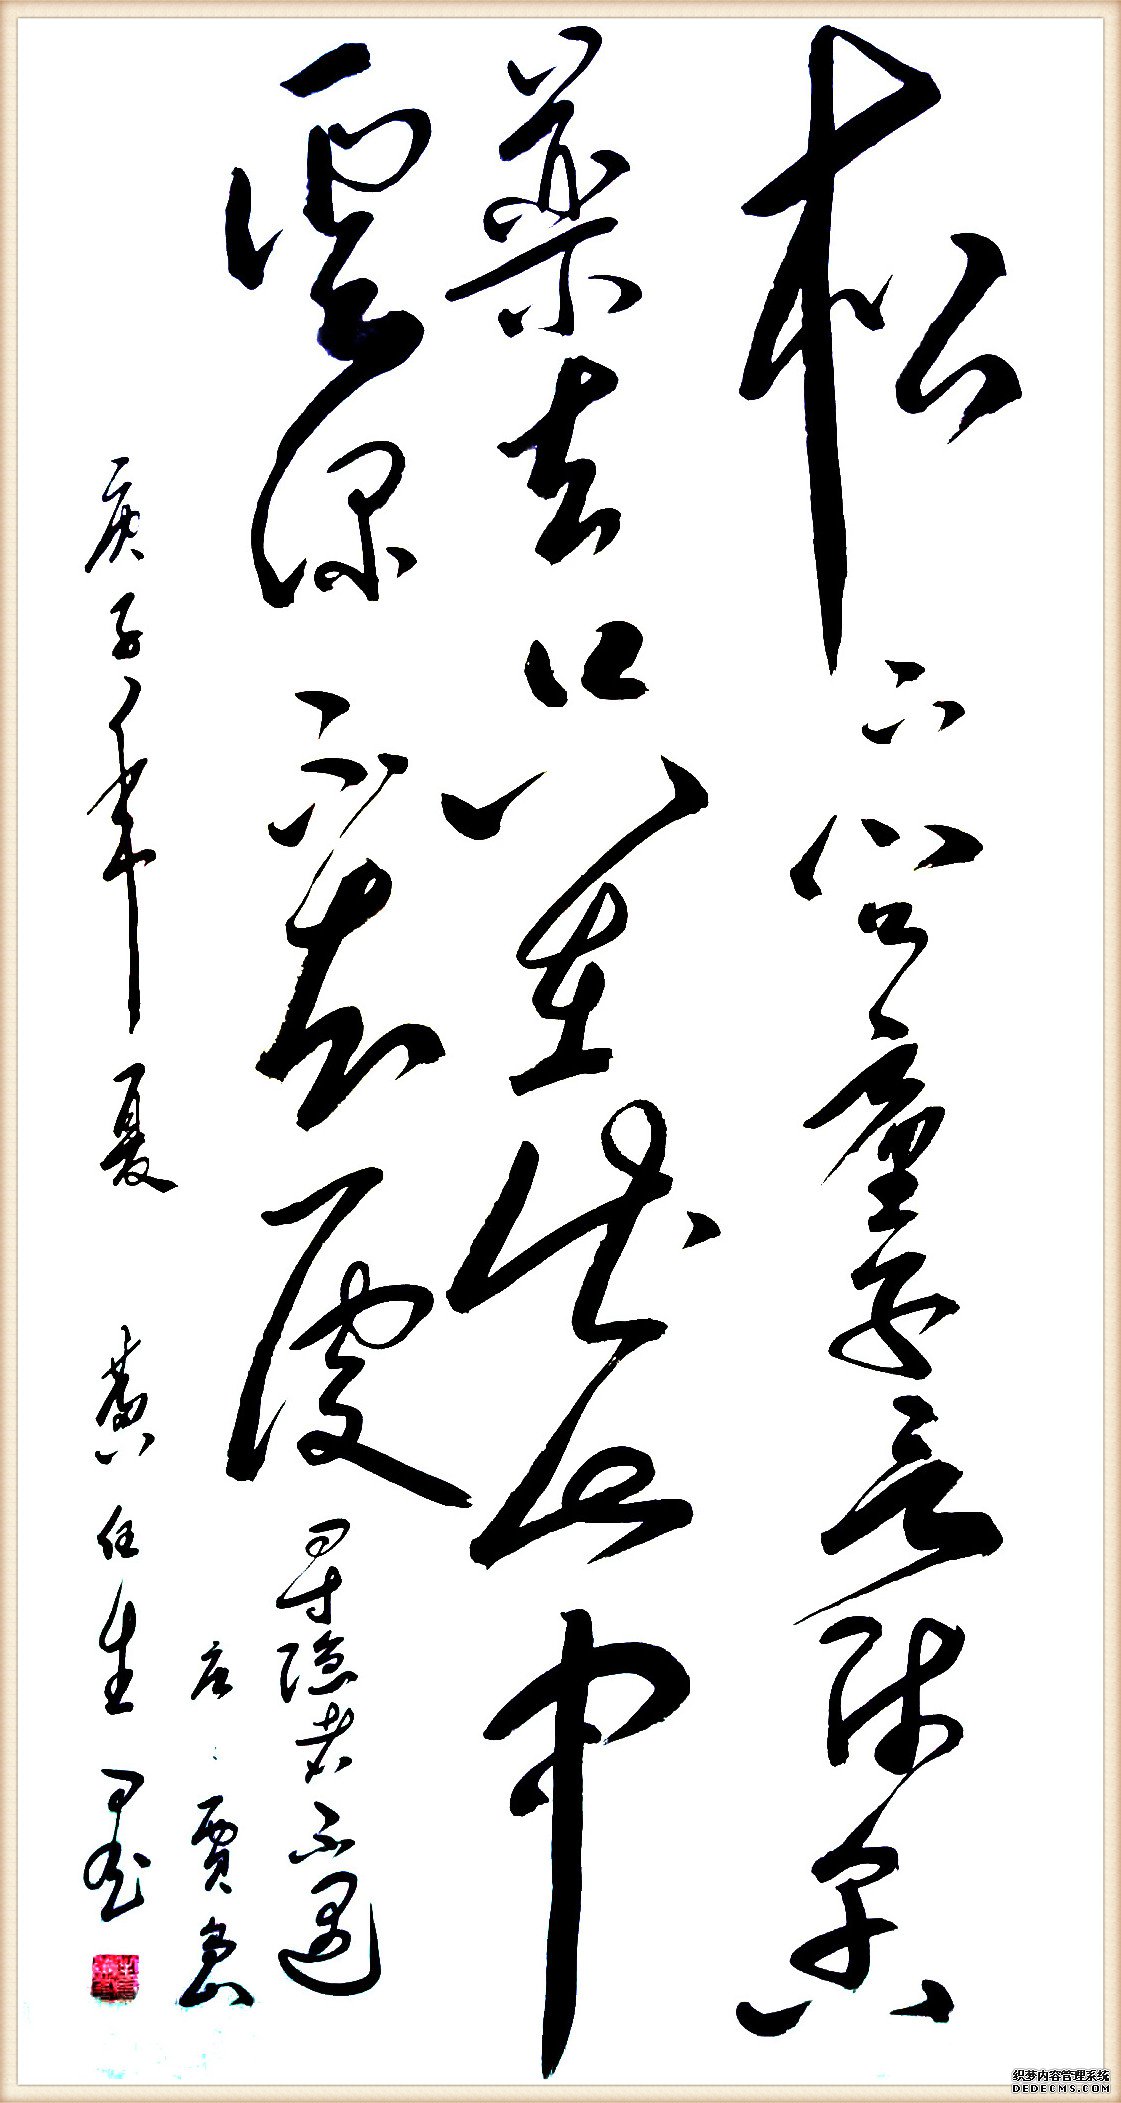 松下問童子言師采
藥去只在此山中
雲深不知處
寻隐者不遇
唐 賈島
庚子年夏 黄任生
织梦内容管理系统
DEDECMS.COM